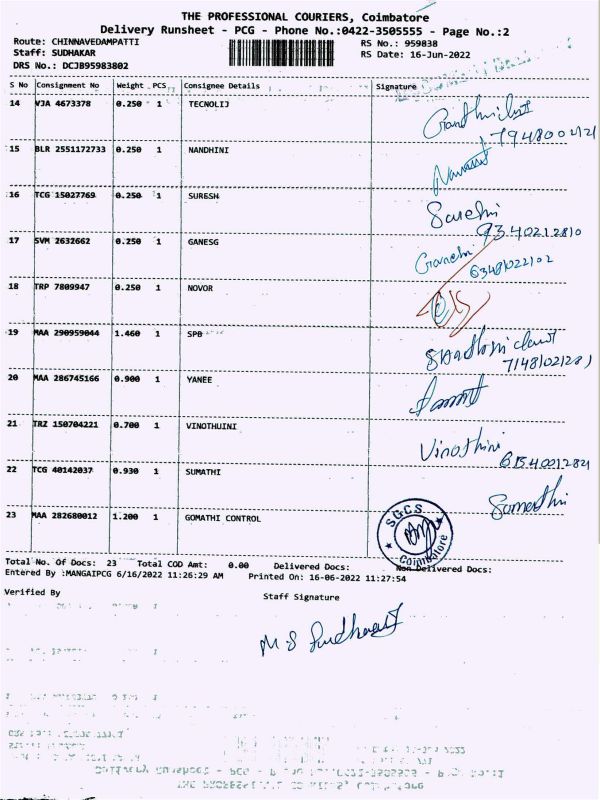 THE PROFESSIONAL COURIERS, Coimbatore
Delivery Runsheet - PCG - Phone No.:0422-3505555 - Page No.:2
Route: CHINNAVEDAMPATTI RS No.: 959838
Staff: SUDHAKAR RS Date: 16-Jun-2022
DRS No.: DCJB95983802
S No Consignment No Weight PCS Consignee Details Signature
14 VJA 4673378 0.250 1 TECNOLIJ
15 BLR 2551172733 0.250 1 NANDHINI
16 TCG 15027769 0.250 1 SURESH Suresh
17 SVM 2632662 0.250 1 GANESG Ganesh
18 TRP 7809947 0.250 1 NOVOR
19 MAA 290959044 1.460 1 SPB
20 MAA 286745166 0.900 1 YANEE
21 TRZ 150704221 0.700 1 VINOTHUINI Vinothini
22 TCG 40142037 0.930 1 SUMATHI Sumathi
23 MAA 282680012 1.200 1 GOMATHI CONTROL
SGCS
Coimbatore
Total No. Of Docs: 23 Total COD Amt: 0.00 Delivered Docs: Non Delivered Docs:
Entered By :MANGAIPCG 6/16/2022 11:26:29 AM Printed On: 16-06-2022 11:27:54
Verified By Staff Signature